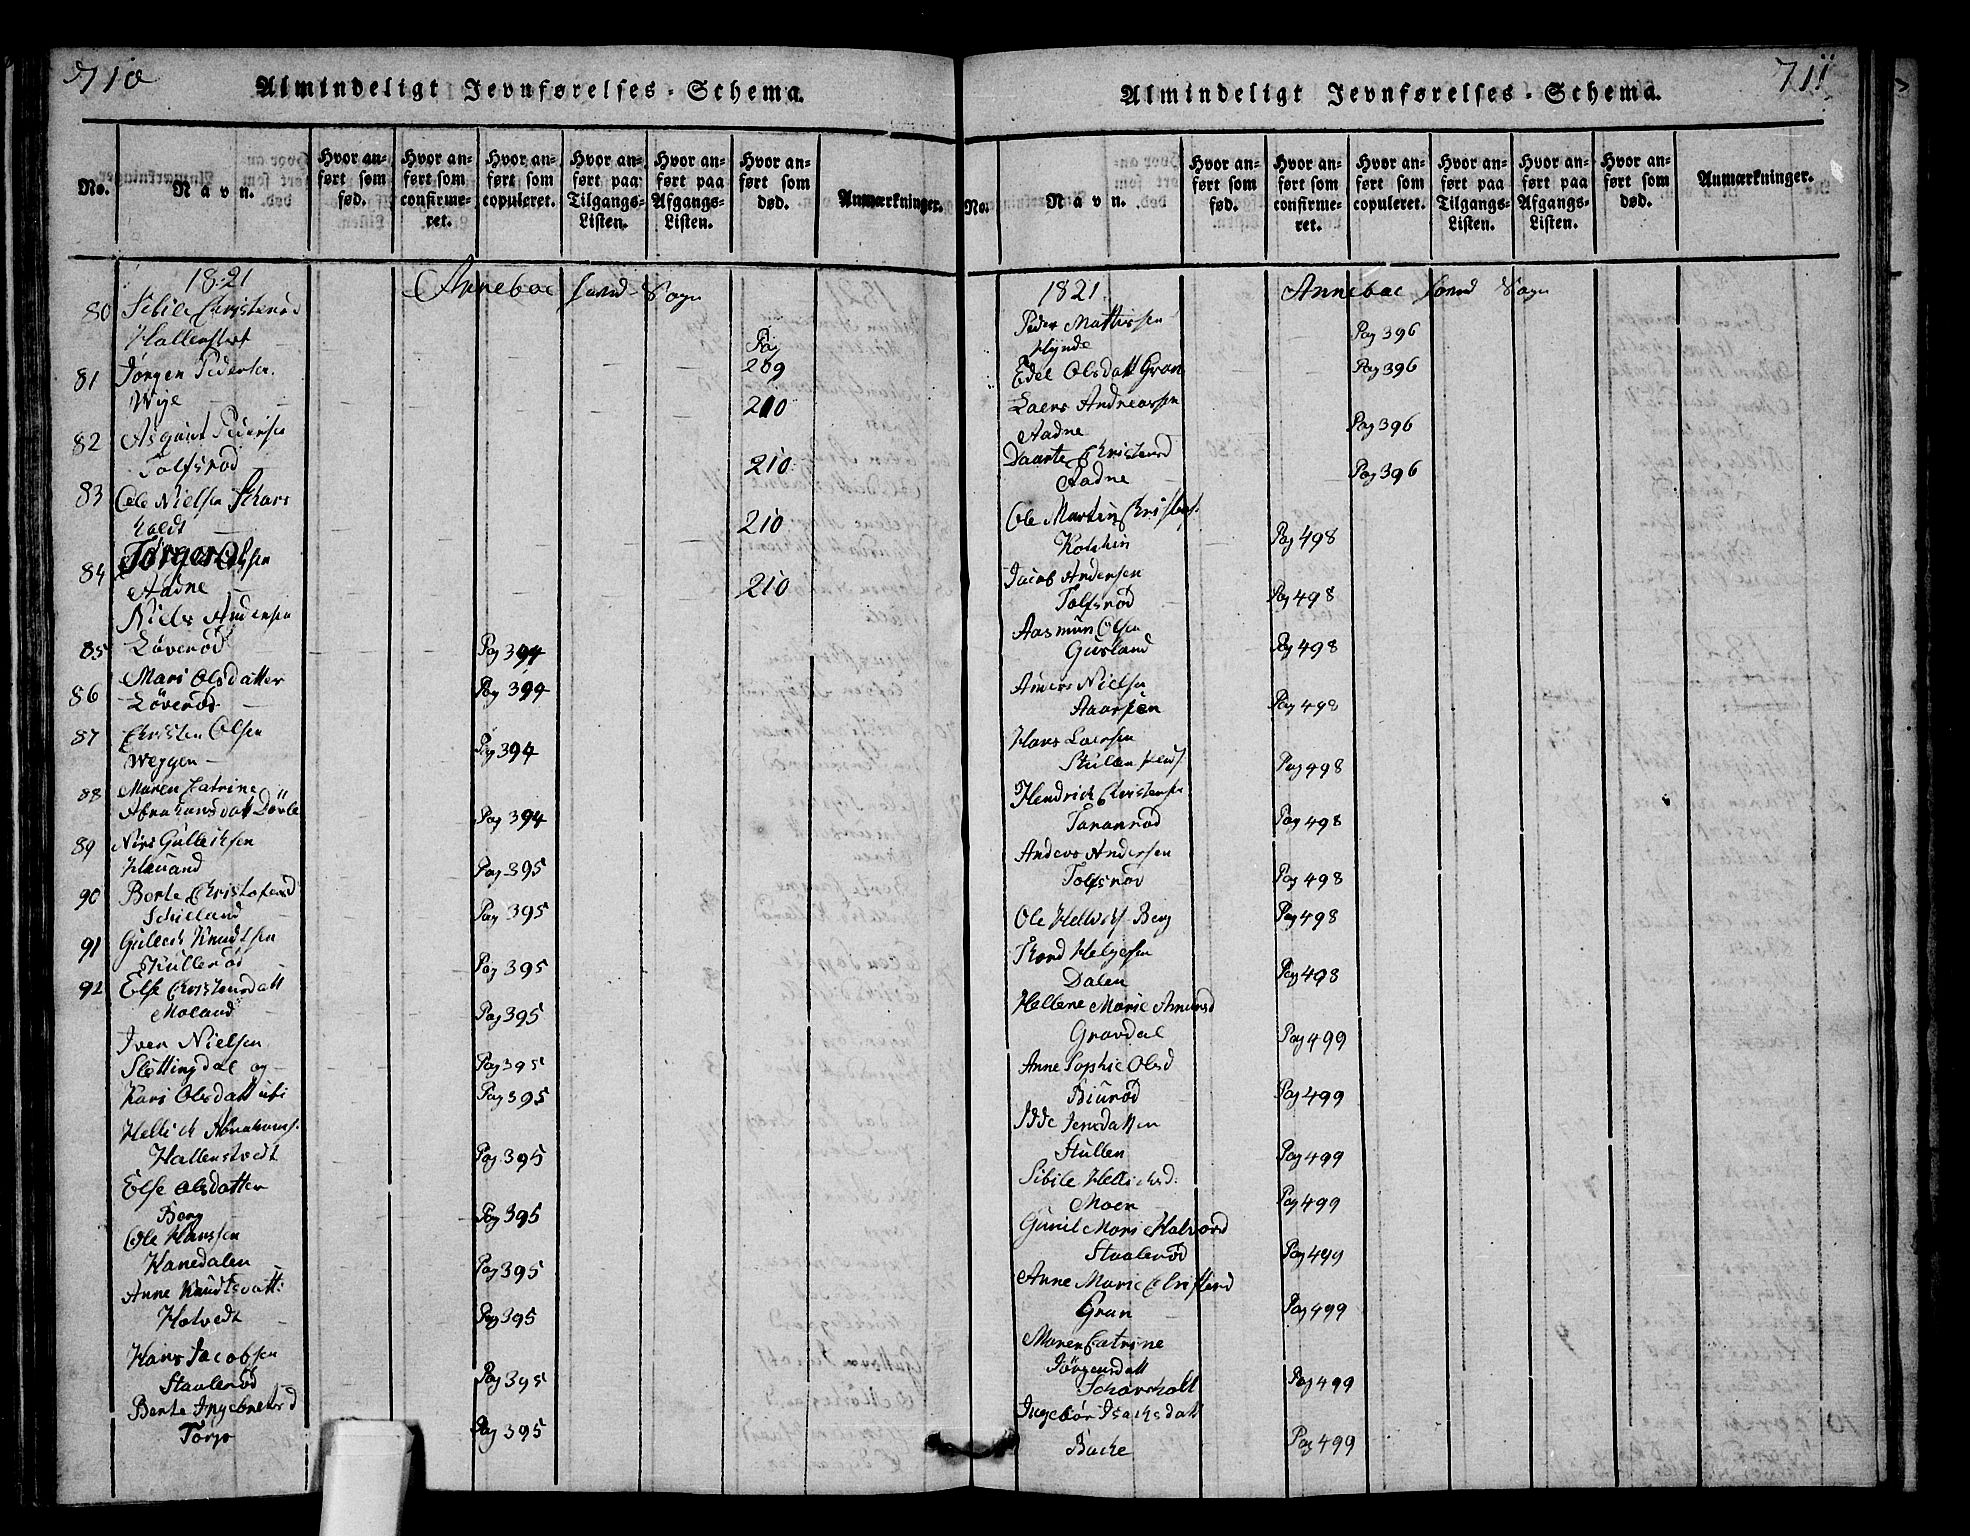 710
Almindeligt Jevnførelses-Schema.
No.
Navn.
Hvor an-
ført som
fød.
Hvor an-
ført som
confirme-
ret.
Hvor an-
ført som
copuleret.
Hvor an-
ført paa
Tilgangs-
Listen.
Hvor an-
ført paa
Afgangs-
Listen.
Hvor an-
ført som
død.
Anmærkninger.
1821 Anneboe Sogn
80 Sibile Christensd
Hallenstvet Pag
81 Jørgen Pedersen 209
Wye 210
82 Pedersen
Tolfsrød 210
83 Ole Nielsen Skars
holdt 210
84 Jørger Olsen
Aadne 210
Niels Andersen
85 Løverød Pag 394
Mari Olsdatter
86 Løverød Pag 394
87 Christen Olsen
Weggen Pag 394
88 Maren Catrine
Abrahamsdatt Pag 394
89 Nirs Gullichsen
Hauand Pag 395
90 Berte Christofersd
Schieland Pag 395
91 Gulech Knudtsen
Skullerød Pag 395
92 Else Christensdatt
Moland Pag 395
Iver Nielsen
Slettingdal og Pag 395
Kari Olsdatt ibi Pag 395
Hellich Abrahams.
Hallenstvedt Pag 395
Else Olsdatter
Berg Pag 395
Ole Hanssen
Hanedalen Pag 395
Anne Knudtsdatt:
Hotvedt Pag 395
Hans Jacobsen
Staalerød Pag 395
Berte Ingebretsd
Torp Pag 395
711
Almindeligt Jevnførelses-Schema.
No.
Navn.
Hvor an-
ført som
fød.
Hvor an-
ført som
confirme-
ret.
Hvor an-
ført som
copuleret.
Hvor an-
ført paa
Tilgangs-
Listen.
Hvor an-
ført paa
Afgangs-
Listen.
Hvor an-
ført som
død.
Anmærkninger.
1821 Anneboe Sogn
Peder Mathissen
Hynde Pag 396
Edel Olsdatt Gran Pag 396
Laers Andreassen
Aadne Pag 396
Daarte Christensd
Aadne Pag 396
Ole Martin Christens.
Pag 498
Jacob Andersen
Tolfsrød Pag 498
Aasmun Olsen
Gusland Pag 498
Anders Nielsen
Pag 498
Hans Laersen
Skullen Pag 498
Hendrich Christensen
Taranrød Pag 498
Anders Andersen
Tolfsrød Pag 498
Ole Hellichs. Berg Pag 498
Thord Helgesen
Dalen Pag 498
Hellene Marie Amunsd
Gravdal Pag 499
Anne Sophie Olsd
Biurød Pag 499
Idde Jensdatten
Skullen Pag 499
Sibile Hellichsd:
Moen Pag 499
Gunil Mari Halvord
Staalerød Pag 499
Anne Marie Christensd
Gran Pag 499
Maren Catrine
Jørgensdatt
Scharsholt Pag 499
Ingebør Isachsdatt
Bache Pag 499